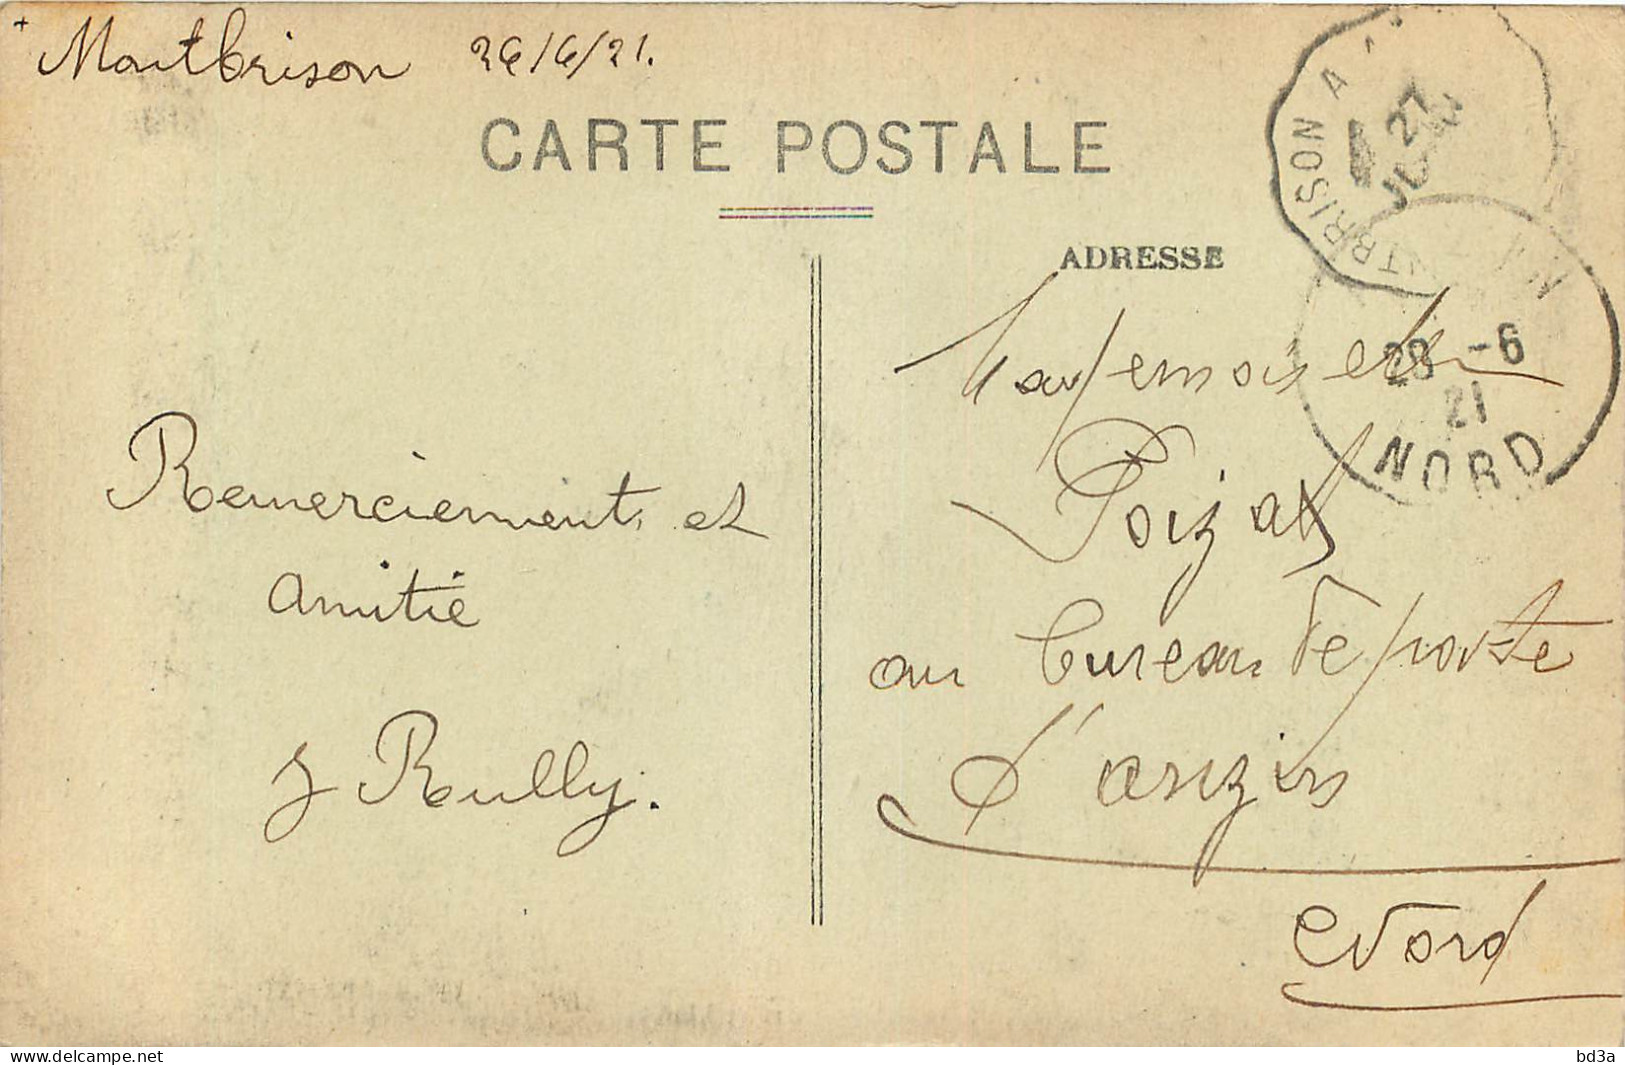 Montbrison 26/6/21.
CARTE POSTALE
MONTBRISON A
27
28 -6
21
NORD
ADRESSE
Remerciement et
amitié
J Rully.
Mademoiselle
Poizat
au bureau de poste
d'anzin
Nord
delcampe.net
bd3a